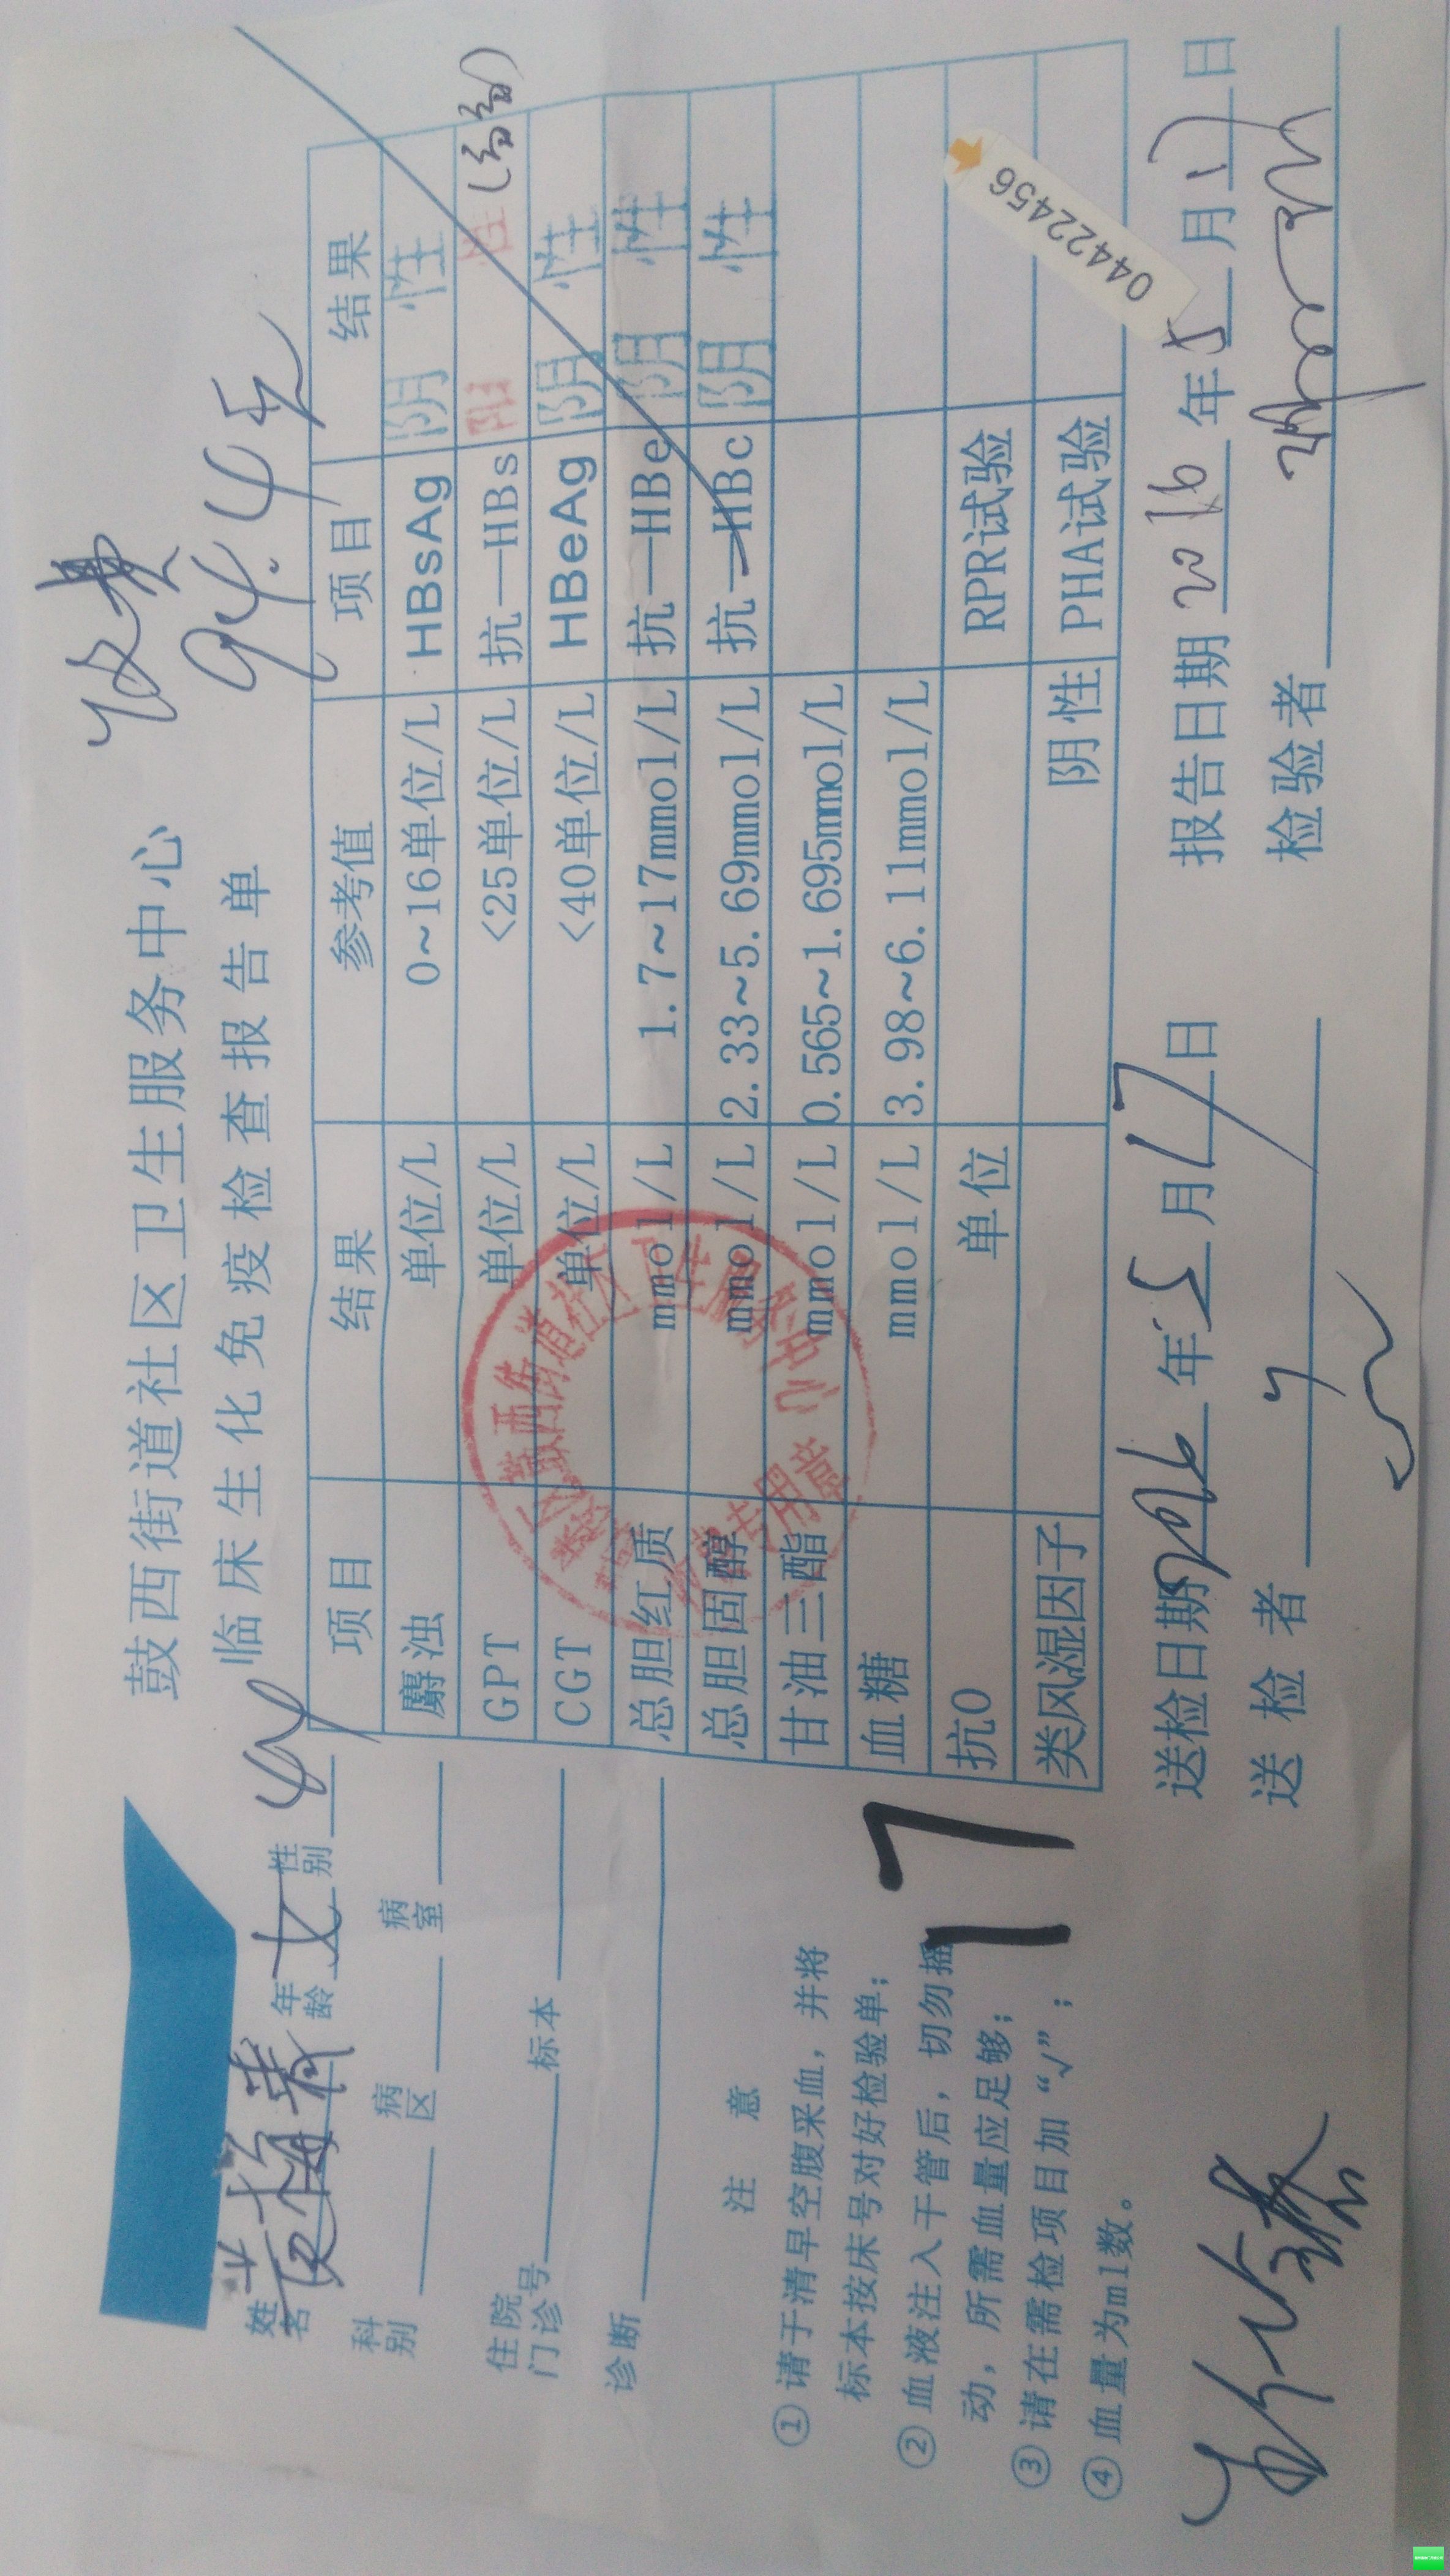 鼓西街道社区卫生服务中心
临床生化免疫检查报告单
94.4
姓名 年龄 女 性别
科别 病区 病室
住院门诊号 标本
诊断
注 意
①请于清早空腹采血，并将
标本按床号对好检验单；
②血液注入干管后，切勿摇
动，所需血量应足够；
③请在需检项目加“√”；
④血量为ml数。
17
项目 结果 参考值 项目 结果
麝浊 单位/L 0~16单位/L HBsAg 阴性
GPT 单位/L <25单位/L 抗—HBs 阳性
CGT 单位/L <40单位/L HBeAg 阴性
总胆红质 mmol/L 1.7~17mmol/L 抗—HBe 阴性
总胆固醇 mmol/L 2.33~5.69mmol/L 抗—HBc 阴性
甘油三酯 mmol/L 0.565~1.695mmol/L
血糖 mmol/L 3.98~6.11mmol/L
抗O 单位 RPR试验
类风湿因子 阴性 PHA试验
04422456
鼓西街道社区卫生服务中心
专用章
送检日期 年5月17日 报告日期2016年5月17日
送检者 检验者